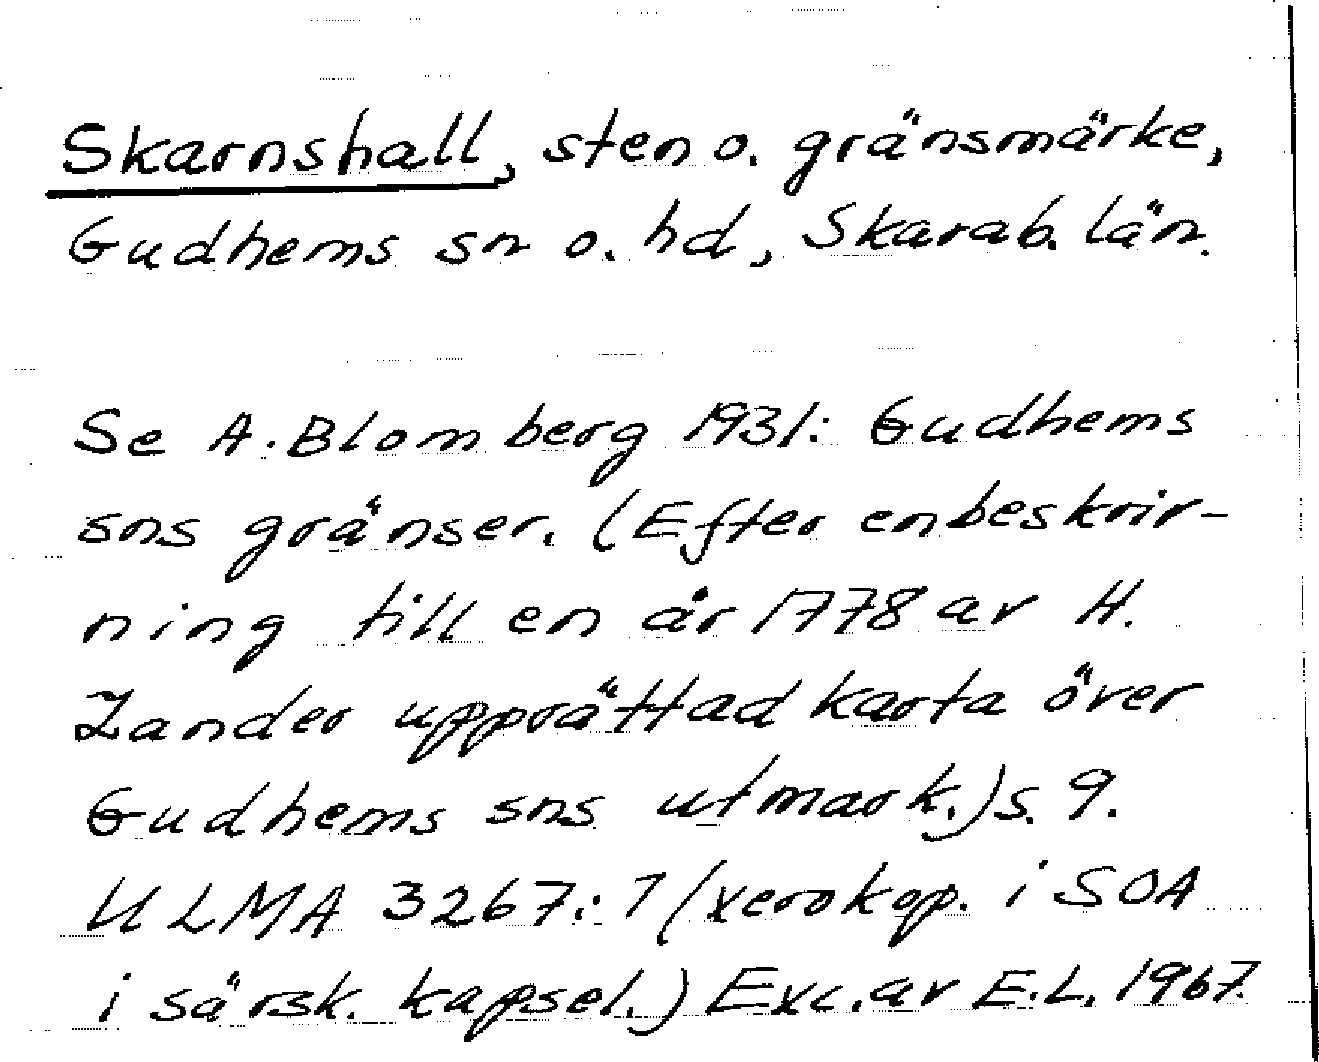 Skarnshall, sten o. gränsmärke,
Gudhems sn o. hd, Skarab. län.
Se A. Blomberg 1931: Gudhems
sns gränser. (Efter en beskriv-
ning till en år 1778 av H.
Zander upprättad karta över
Gudhems sns utmark.) s. 9.
ULMA 3267:7 (xerokop. i SOA
i särsk. kapsel.) Exc. av E.L. 1967.